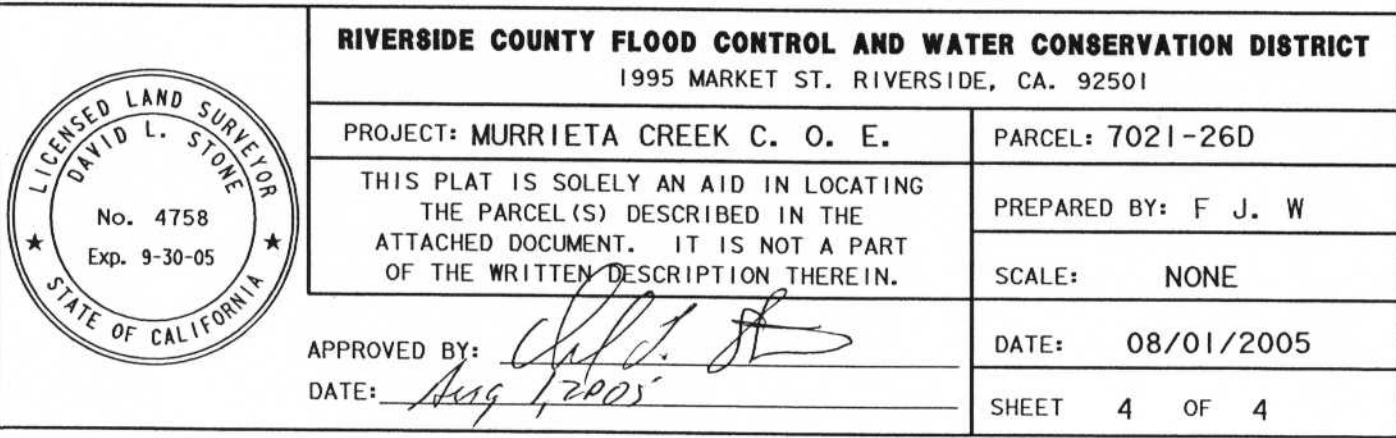 LICENSED LAND SURVEYOR
DAVID L. STONE
No. 4758
Exp. 9-30-05
★ STATE OF CALIFORNIA ★
RIVERSIDE COUNTY FLOOD CONTROL AND WATER CONSERVATION DISTRICT
1995 MARKET ST. RIVERSIDE, CA. 92501
PROJECT: MURRIETA CREEK C. O. E.
THIS PLAT IS SOLELY AN AID IN LOCATING
THE PARCEL(S) DESCRIBED IN THE
ATTACHED DOCUMENT. IT IS NOT A PART
OF THE WRITTEN DESCRIPTION THEREIN.
APPROVED BY:
DATE: Aug 1, 2005
PARCEL: 7021-26D
PREPARED BY: F J. W
SCALE: NONE
DATE: 08/01/2005
SHEET 4 OF 4